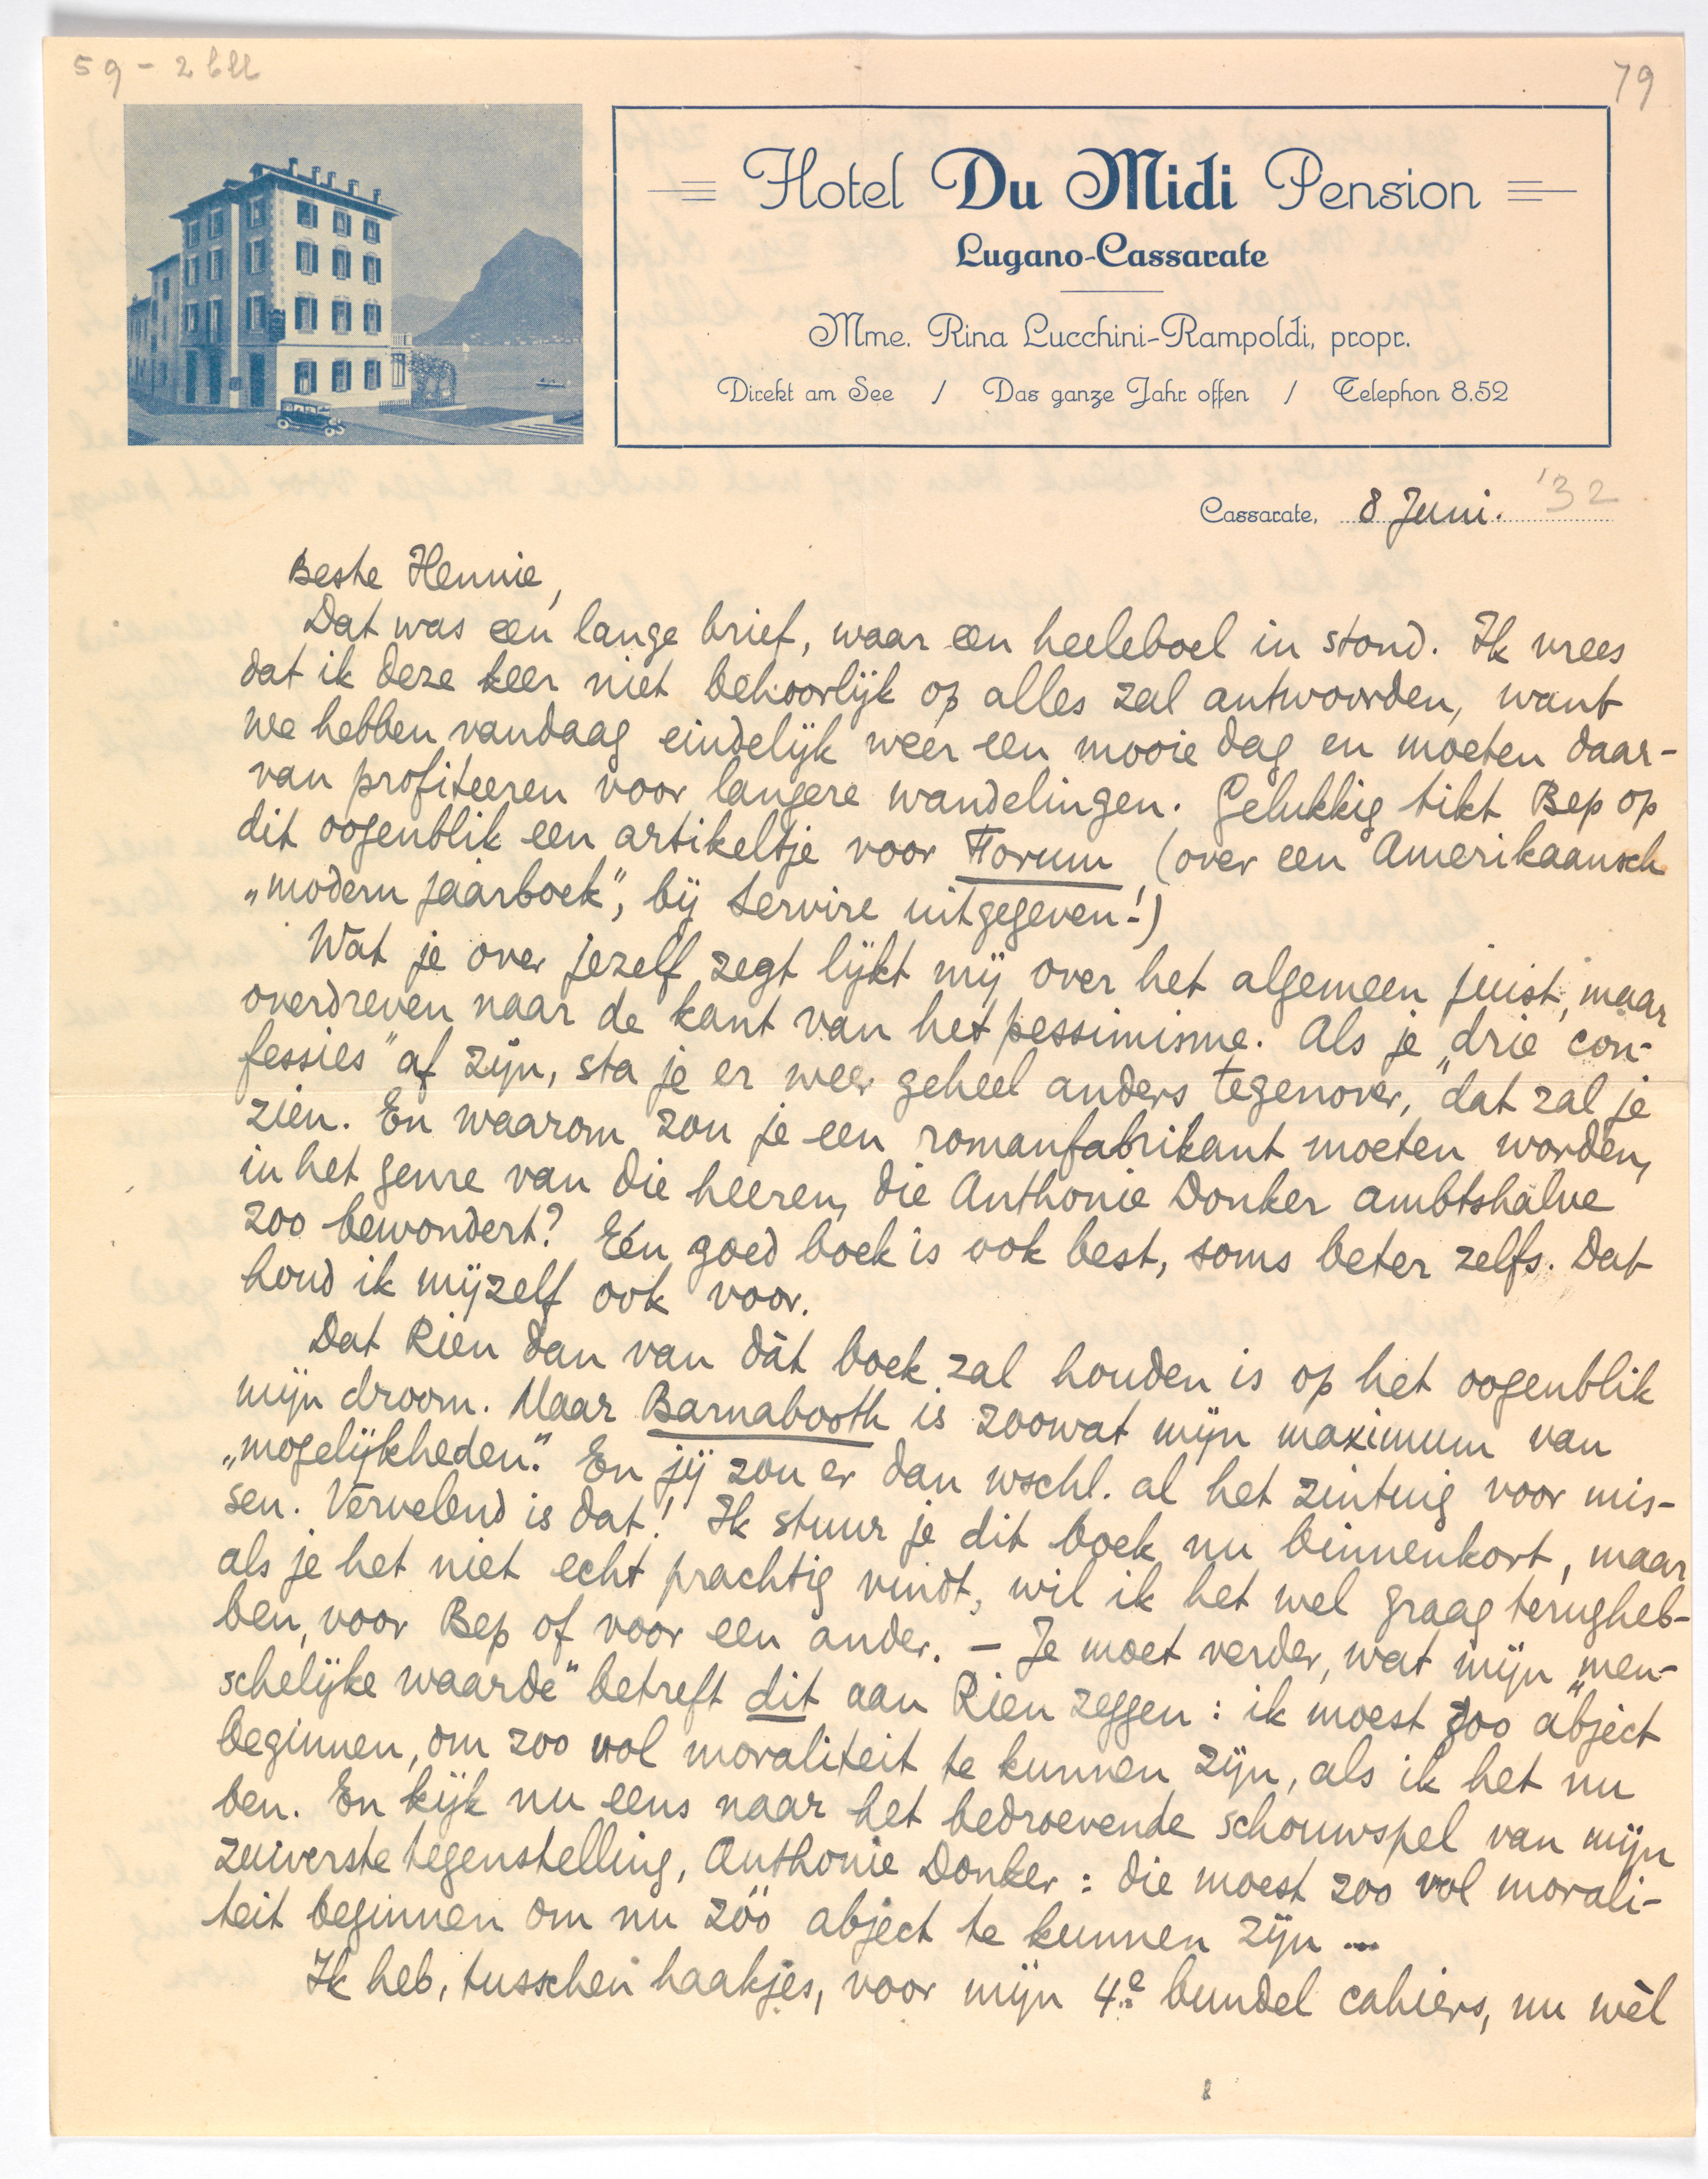 59 - 2 bll
79
Hotel Du Midi Pension
Lugano-Cassarate
Mme. Rina Lucchini-Rampoldi, propr.
Direkt am See / Das ganze Jahr offen / Telephon 8.52
Cassarate, 8 Juni. '32
Beste Hennie,
Dat was een lange brief, waar een heeleboel in stond. Ik vrees
dat ik deze keer niet behoorlijk op alles zal antwoorden, want
we hebben vandaag eindelijk weer een mooie dag en moeten daar-
van profiteeren voor langere wandelingen. Gelukkig tikt Bep op
dit oogenblik een artikeltje voor Forum (over een Amerikaansch
„modern jaarboek", bij Servire uitgegeven!)
Wat je over jezelf zegt lijkt mij over het algemeen juist, maar
overdreven naar de kant van het pessimisme. Als je „drie con-
fessies" af zijn, sta je er weer geheel anders tegenover, dat zal je
zien. En waarom zou je een romanfabrikant moeten worden,
in het genre van die heeren, die Anthonie Donker ambtshalve
zoo bewondert? Eén goed boek is ook best, soms beter zelfs. Dat
houd ik mijzelf ook voor.
Dat Rien dan van dàt boek zal houden is op het oogenblik
mijn droom. Maar Barnabooth is zoowat mijn maximum van
„mogelijkheden". En jij zou er dan wschl. al het zintuig voor mis-
sen. Vervelend is dat! Ik stuur je dit boek nu binnenkort, maar
als je het niet echt prachtig vindt, wil ik het wel graag terugheb-
ben, voor Bep of voor een ander. – Je moet verder, wat mijn „men-
schelijke waarde" betreft dit aan Rien zeggen: ik moest zoo abject
beginnen, om zoo vol moraliteit te kunnen zijn, als ik het nu
ben. En kijk nu eens naar het bedroevende schouwspel van mijn
zuiverste tegenstelling, Anthonie Donker: die moest zoo vol morali-
teit beginnen om nu zóó abject te kunnen zijn ...
Ik heb, tusschen haakjes, voor mijn 4e bundel cahiers, nu wèl